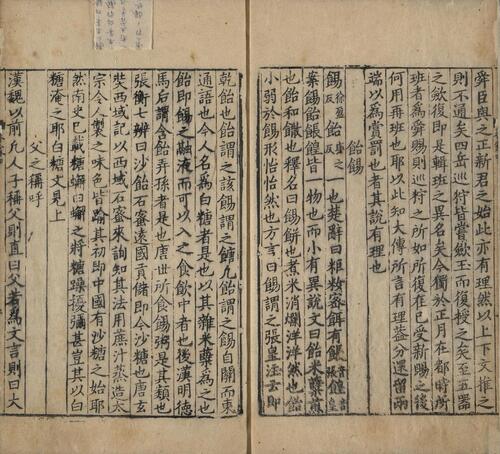 舜臣與之正新君之始此亦有理然以上下文推之
則不通矣四岳巡狩皆嘗斂玉而復授之矣至五器
之飲復即是輯班之異名矣今獨於正月在都時所
班者為舜賜則巡狩之所如所復在已受新賜之後
何用再班也耶以此知大傳所言有理益分還留兩
端以為賞罰也者其說有理也
飴餳
餳徐盈反飴與之反一也楚辭曰粔籹蜜餌有餦餭音張音皇
案餳飴餦餭皆一物也而小有異說文曰飴米糵煎
也飴和饊也釋名曰餳餅也煮米消爛洋洋然也飴
小弱於餳形怡怡然也方言曰餳謂之張皇注云即
乾飴也飴謂之該餳謂之餹凡飴謂之餳自關而東
通語也今人名為白糖者是也以其雜米糵為之也
飴即餳之融液而可以入之食飲中者也後漢明德
馬后謂含飴弄孫者是也唐世所食餳粥是其類也
張衡七辨曰沙飴石蜜遠國貢儲即今沙糖也唐玄
奘西域記以西域石蜜來詢知其法用蔗汁蒸造太
宗令人製之味色皆踰其初即中國有沙糖之始耶
然南史已載糖蟹曰蟹之將糖躁擾彌甚豈其以白
糖淹之耶白糖文見上
父之稱呼
漢魏以前凡人子稱父則直曰父若為文言則曰大